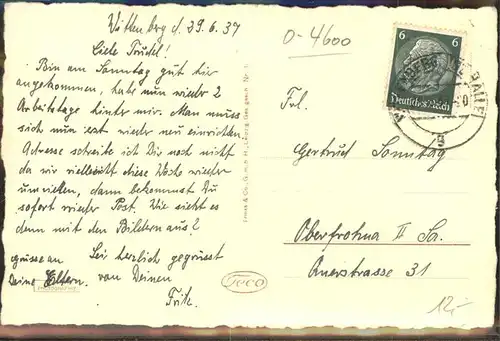 Wittenberg d. 29.6.37
Liebe Trudel!
Bin am Sonntag gut hier
angekommen, habe nun wieder 2
Arbeitstage hinter mir. Man muss
sich nun erst wieder neu einrichten.
Adresse schreibe ich Dir noch nicht
da wir vielleicht diese Woche wieder
umziehen, dann bekommst Du
sofort wieder Post. Wie sieht es
denn mit den Bildern aus?
Sei herzlich gegrüsst
von Deinen
Fritz.
grüsse an
Deine Eltern.
Teco
0-4600
6 6
Deutsches Reich
Frl.
Gertrud Sonntag
Oberfrohna II Sa.
Auerstrasse 31
12,-